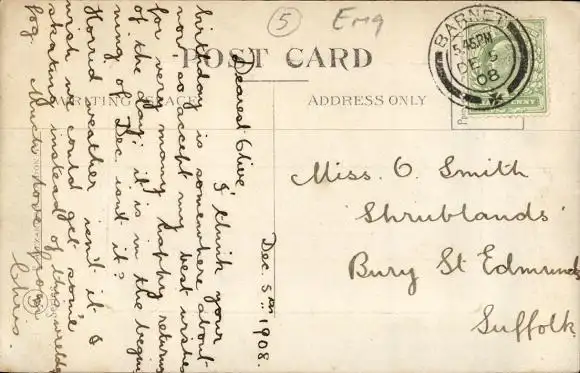 5 Emg
POST CARD
WRITING SPACE
ADDRESS ONLY
BARNET
5.45PM
DE 5
08
Miss. O. Smith
'Shrublands'
Bury St Edmunds
Suffolk.
Dec. 5th 1908.
Dearest Olive,
I think your
birthday is somewhere about
now so accept my best wishes
for very many happy returns
of the day; it is in the begin
ning of Dec. isn't it?
Horrid weather isn't it I
wish we could get some
skating instead of this
fog. Much love from